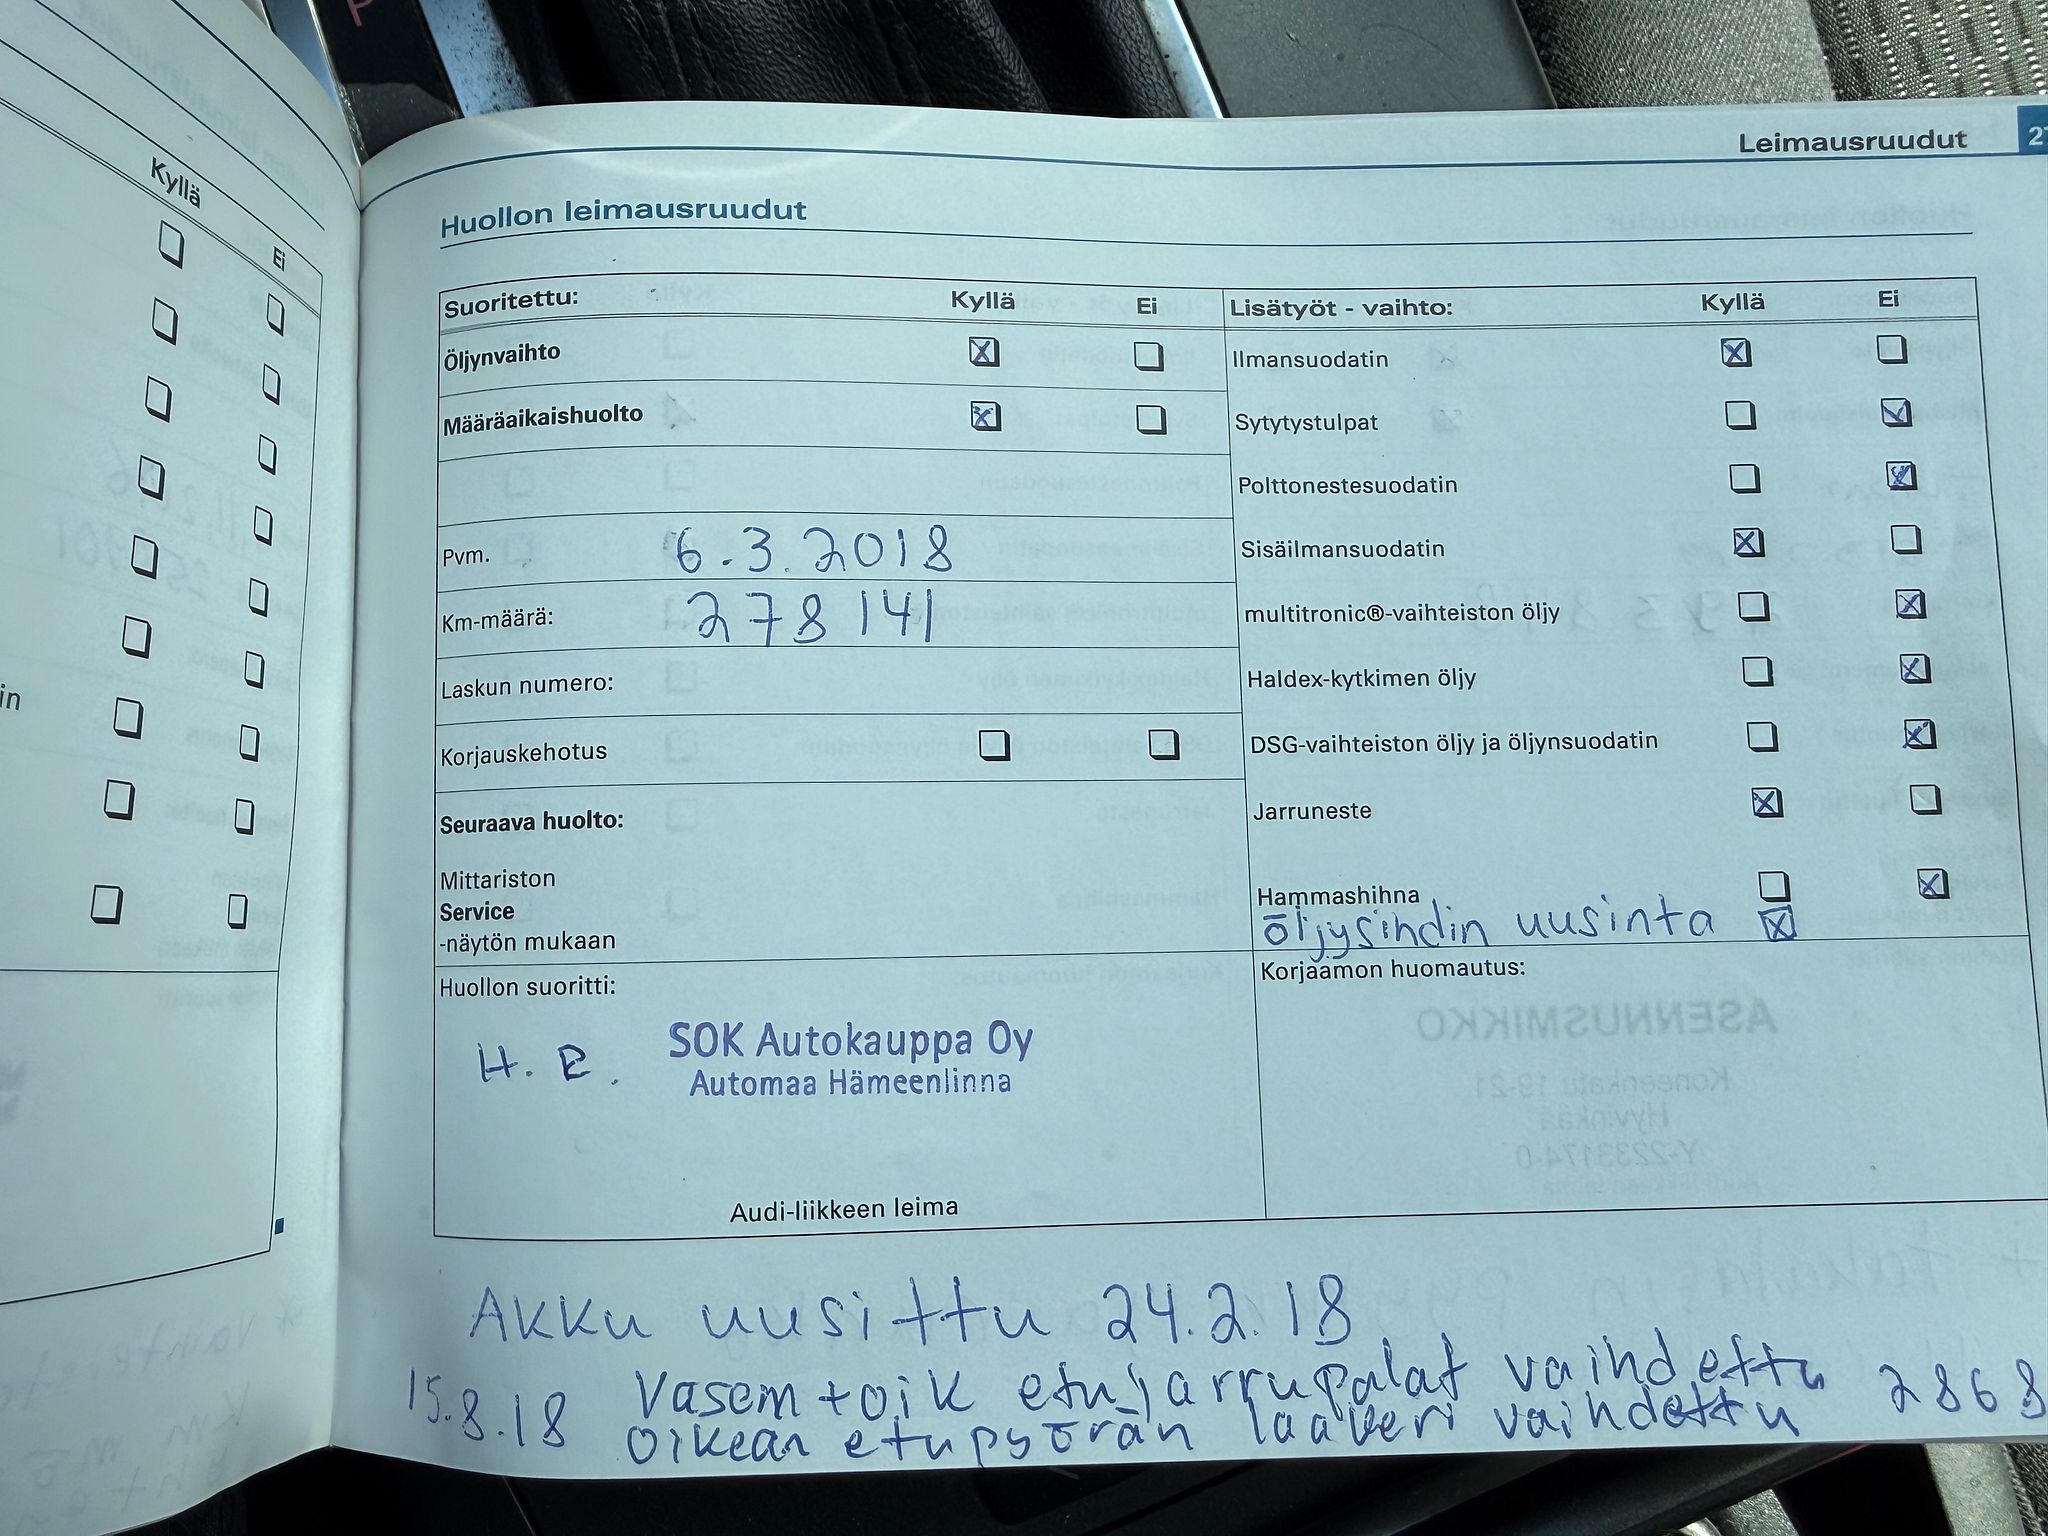 Kyllä
Ei
in
Leimausruudut
27
Huollon leimausruudut
Suoritettu: Kyllä Ei
Öljynvaihto
Määräaikaishuolto
Pvm. 6.3.2018
Km-määrä: 278 141
Laskun numero:
Korjauskehotus
Seuraava huolto:
Mittariston
Service
-näytön mukaan
Lisätyöt - vaihto: Kyllä Ei
Ilmansuodatin
Sytytystulpat
Polttonestesuodatin
Sisäilmansuodatin
multitronic®-vaihteiston öljy
Haldex-kytkimen öljy
DSG-vaihteiston öljy ja öljynsuodatin
Jarruneste
Hammashihna
öljysihdin uusinta
Huollon suoritti:
H. R.
SOK Autokauppa Oy
Automaa Hämeenlinna
Audi-liikkeen leima
Korjaamon huomautus:
Akku uusittu 24.2.18
15.8.18 Vasem + oik etujarrupalat vaihdettu 2868
oikean etupyörän laakeri vaihdettu